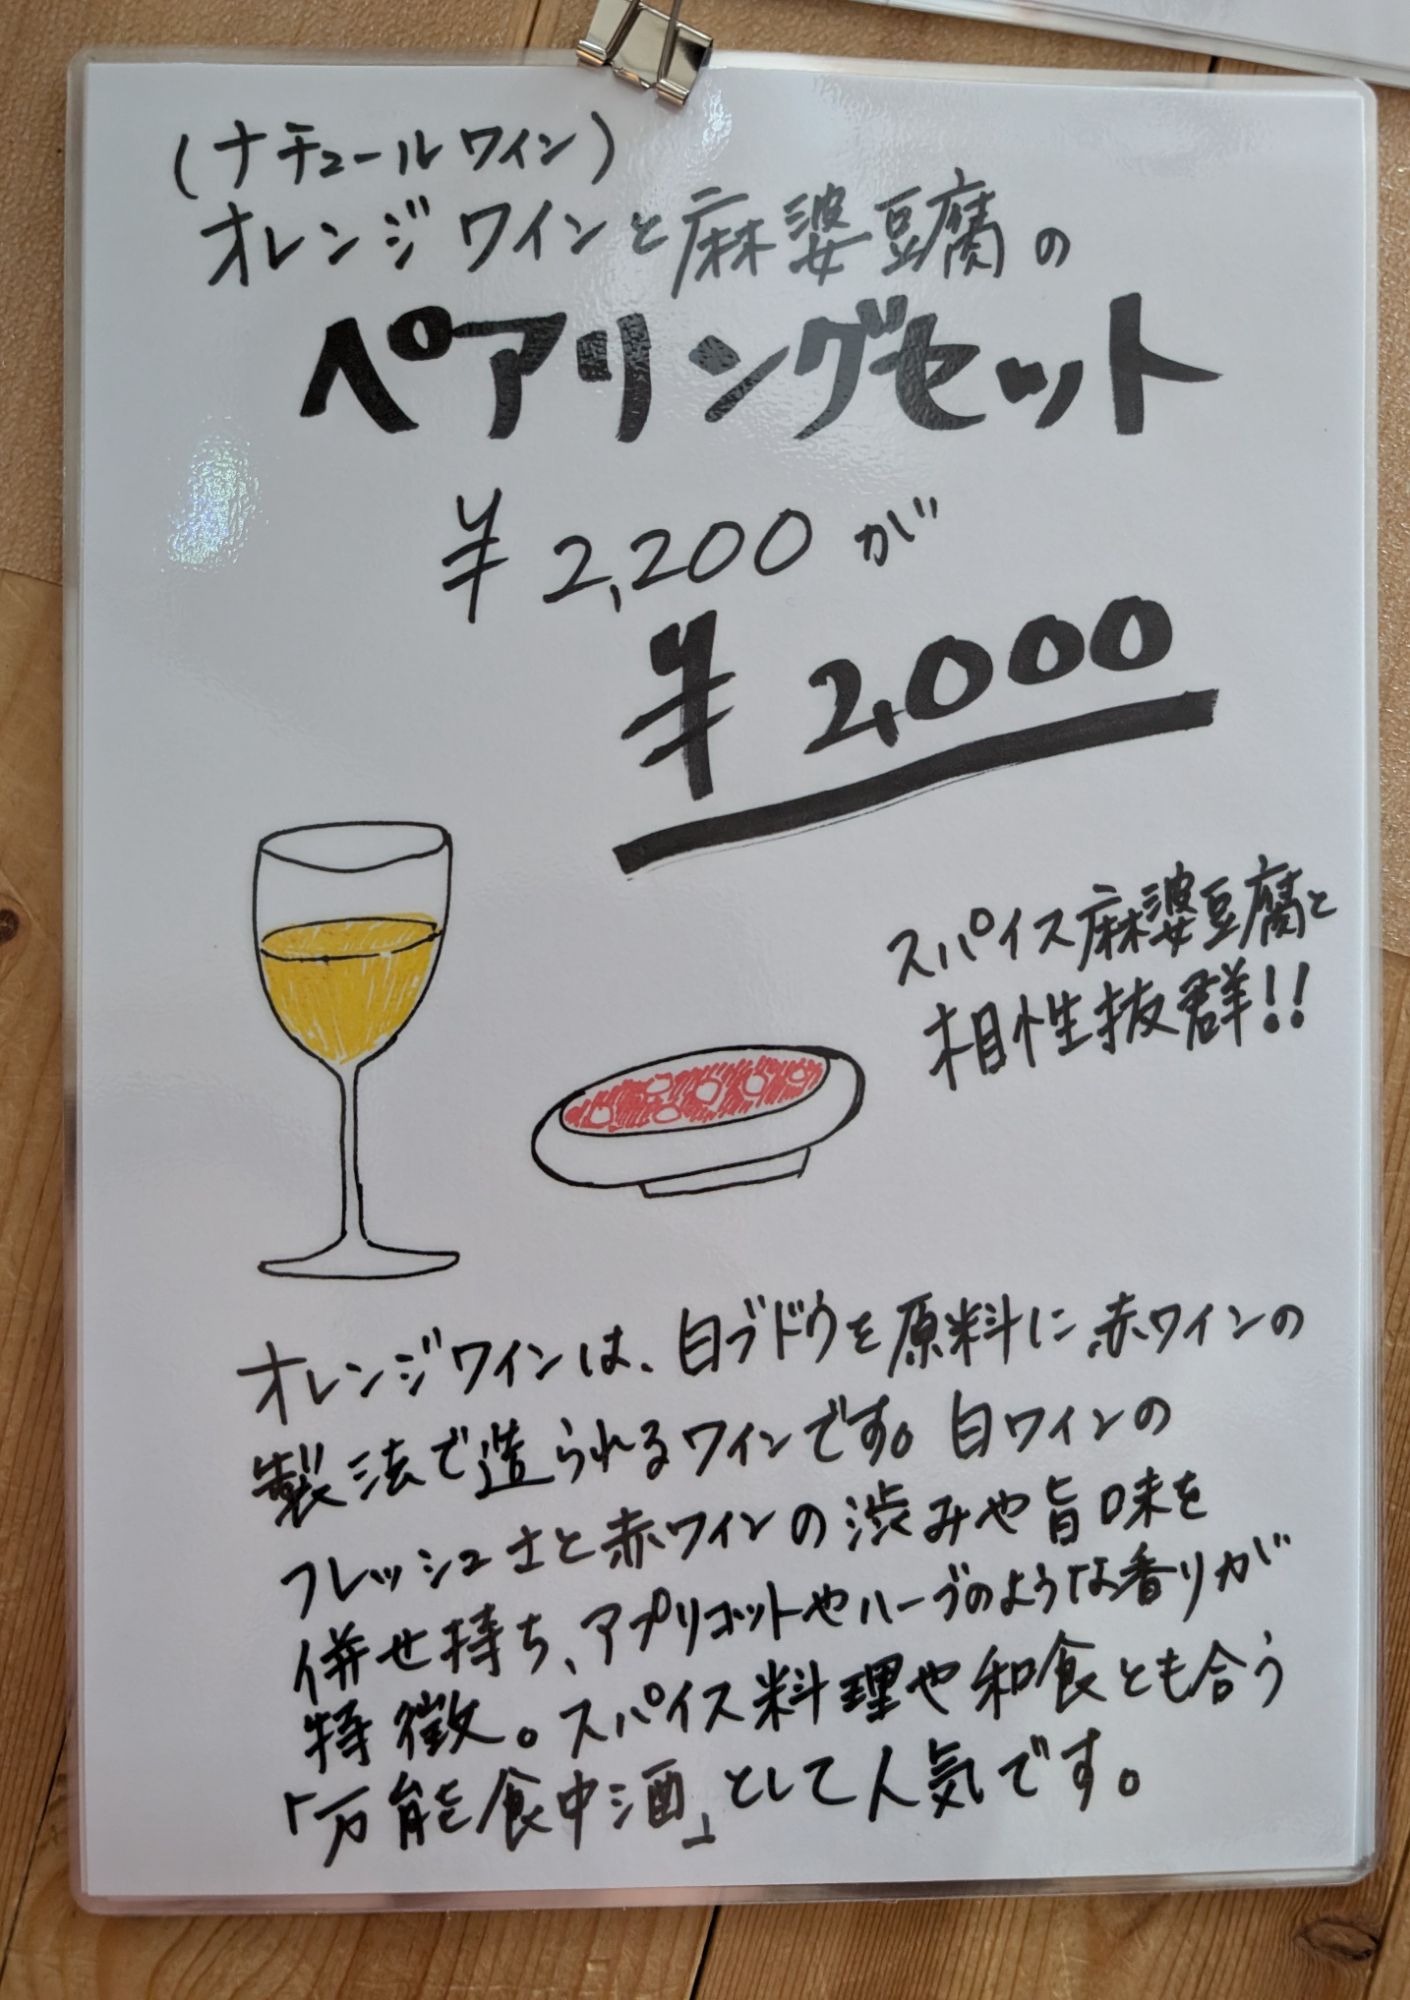 (ナチュールワイン)
オレンジワインと麻婆豆腐の
ペアリングセット
¥2,200が
¥2,000
スパイス麻婆豆腐と
相性抜群!!
オレンジワインは、白ブドウを原料に赤ワインの
製法で造られるワインです。白ワインの
フレッシュさと赤ワインの渋みや旨味を
併せ持ち、アプリコットやハーブのような香りが
特徴。スパイス料理や和食とも合う
「万能食中酒」として人気です。